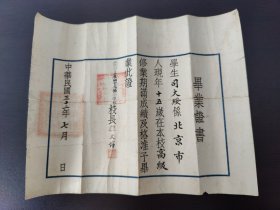 畢業證書
學生司文綬係北京市
人現年十五歲在本校高級
修業期滿成績及格准予畢
業此證
校長
中華民國三十二年七月 日